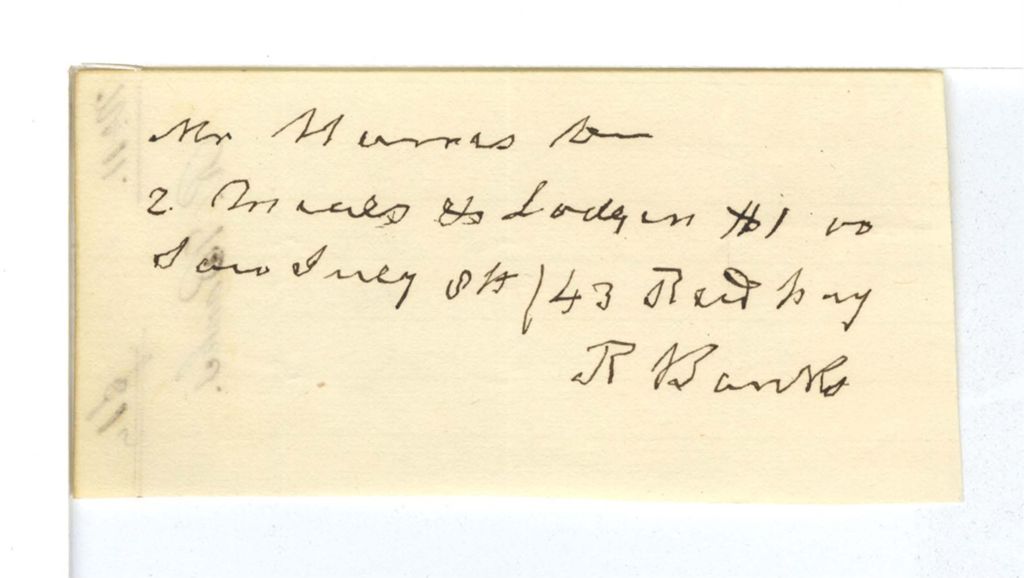 Mr Harras
2. Meals & Lodgin $1 00
Saw July 8th /43 Recd pay
R Banks